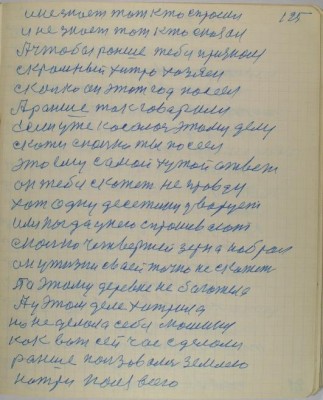 125
и не знает тот кто спросил
и не знает тот кто сказал
А чтобы раньше тебя признал
скромный хитро хозяен
сколко он этот год посеел
А раньше так говарили
если уже косалос этому делу
скати сколко ты посеел
это ему самой худой ответ
он тебе скажет не правду
хот одну десетину уварует
или когда у него спрошивают
сколко четвертей зерна набрал
он у жизни сваей точно не скажет
По этому деревне не багатила
А у этом деле хитрила
но не делала себе машину
как вот сей час сделали
раньше ползовалис землею
на три поля всего